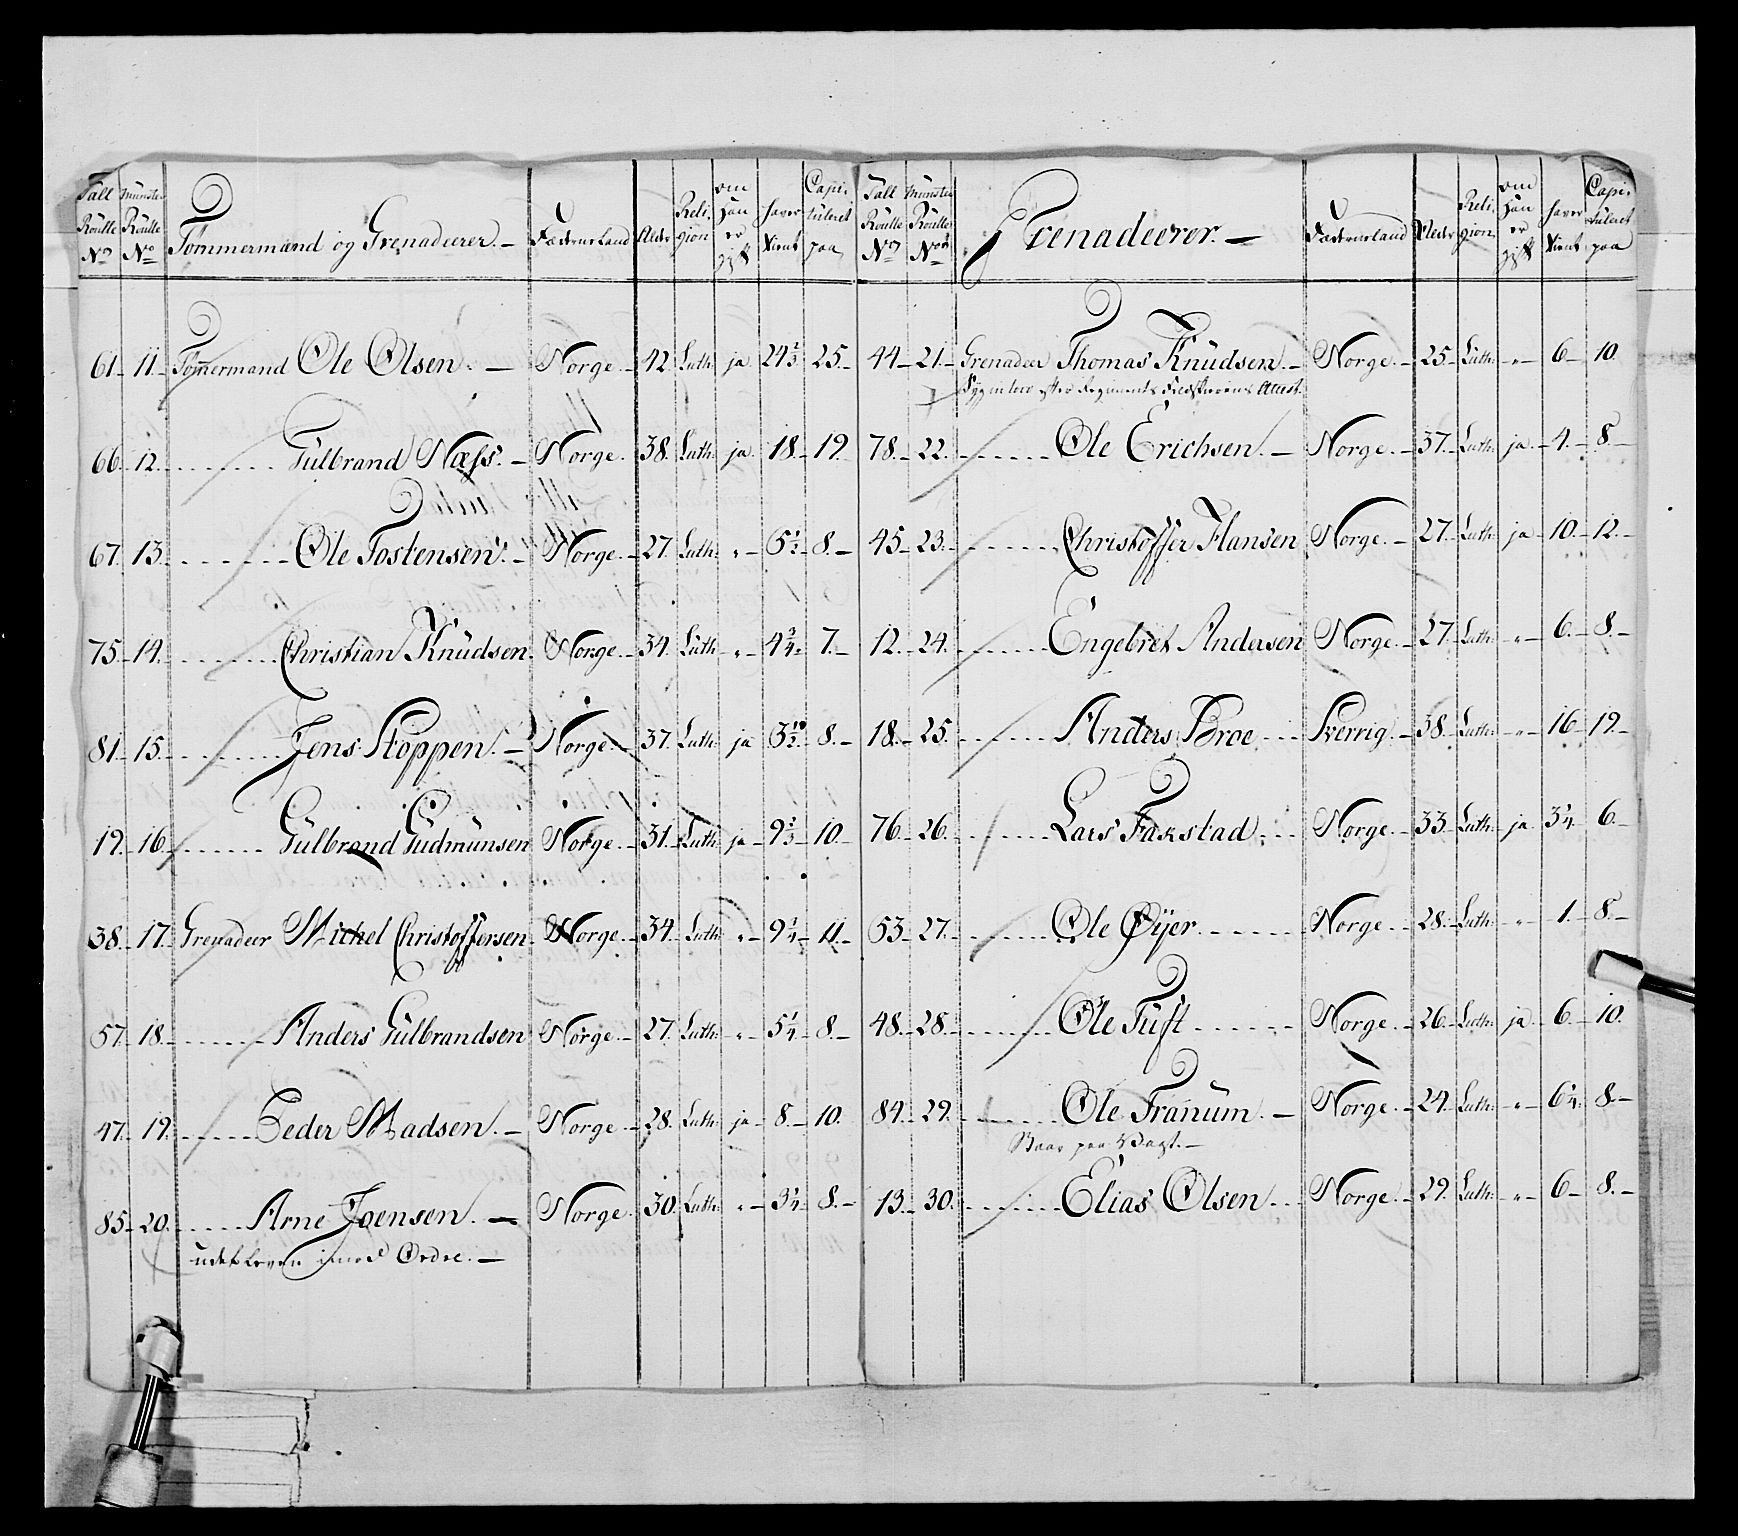 Tall Roulle No | Munster Roulle No | Tømmermænd og Grenadeerer. | Fæderneland | Alder | Religion | om han er gift | haver tient | Capituleret paa
61 11 Tømmermand Ole Olsen. Norge. 42. Luth: ja 24 2/3 25.
66 12 Gulbrand Næss. Norge. 38. Luth: ja 18. 19.
67. 13. Ole Tostensen. Norge. 27. Luth: " 5 1/2 8.
75 14. Christian Knudsen. Norge. 34. Luth: " 4 3/4 7.
81. 15. Jens Stoppen. Norge. 37. Luth: ja 3 1/2 8.
19. 16 Gulbrand Gudmunsen Norge. 31. Luth: ja 9 2/3 10.
38. 17. Grenadeer Michel Christoffersen Norge. 34. Luth: " 9 1/4 11.
57. 18. Anders Gulbrandsen Norge. 27. Luth: " 5 1/4 8.
47. 19. Peder Madsen. Norge. 28. Luth: ja 8. 10.
85 20. Arne Joensen. Norge. 30. Luth: " 3 1/4 8.
udebleven imod Ordre.
Tall Roulle No | Munster Roulle No | Grenadeerer. | Fæderneland | Alder | Religion | om han er gift | haver tient | Capituleret paa
44 21. Grenadeer Thomas Knudsen. Norge. 25. Luth: " 6 10.
Syg inden efter Regiments Feldskerens Attest.
78. 22. Ole Erichsen. Norge. 37. Luth: ja 4. 8.
45 23. Christoffer Hansen Norge. 27. Luth: ja 10. 12.
12. 24. Engebret Andersen Norge. 27. Luth: " 6. 8.
18. 25. Anders Broe Sverrig. 38. Luth: " 16 19.
76. 26. Lars Fakstad Norge. 33. Luth: ja 3 1/4 6.
53 27. Ole Øyer. Norge. 28. Luth: " 1. 8.
48. 28. Ole Tuft Norge. 26. Luth: ja 6. 10.
84. 29. Ole Tranum. Norge. 24. Luth: " 6 1/4 8.
Staar paa Vagt.
13. 30. Elias Olsen Norge. 29. Luth: " 6 8.